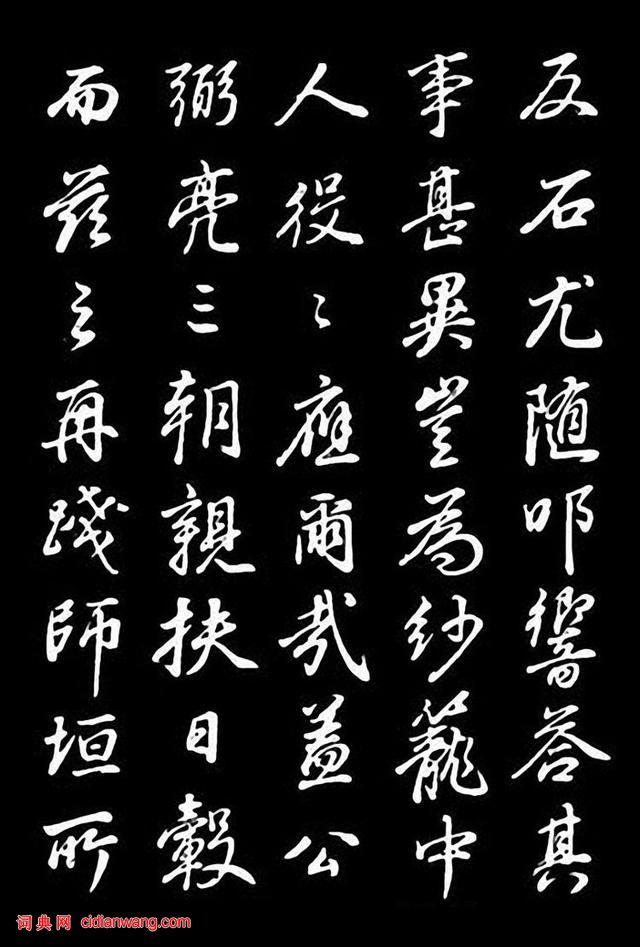 反石尤随叩響荅其
事甚異豈為紗籠中
人役〻應爾哉蓋公
弼亮三朝親扶日轂
而茲之再踐師垣所
词典网 cidianwang.com